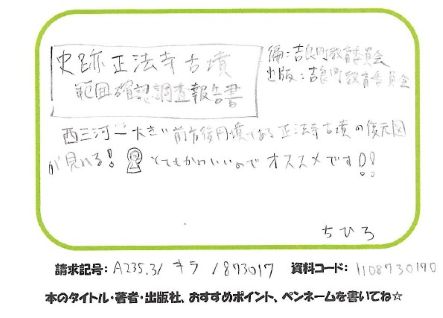 史跡正法寺古墳
範囲確認調査報告書
編：吉良町教育委員会
出版：吉良町教育委員会
西三河一大きい前方後円墳である正法寺古墳の復元図
が見れる！とてもかわいいのでオススメです！！
ちひろ
請求記号：A235.3/キラ/873017 資料コード：1108730190
本のタイトル・著者・出版社、おすすめポイント、ペンネームを書いてね☆